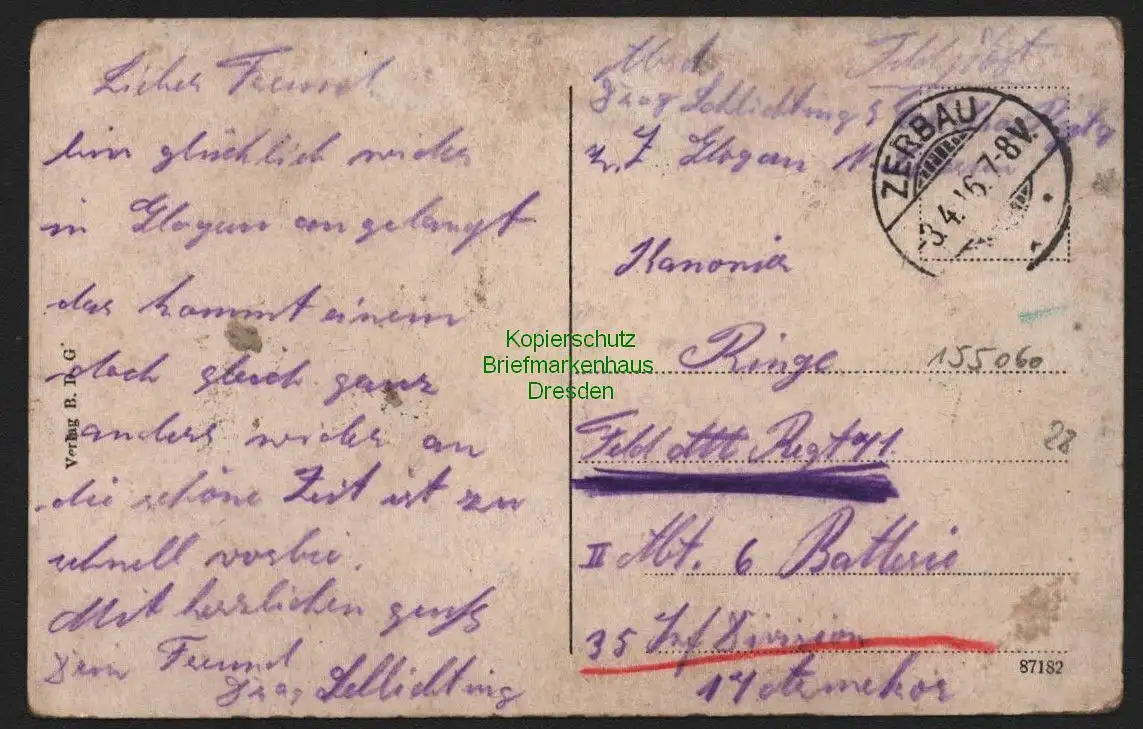 Lieber Freund
bin glücklich wieder
in Glogau angelangt
das kommt einem
doch gleich ganz
anders wieder an
die schöne Zeit ist zu
schnell vorbei.
Mit herzlichen gruß
Dein Freund
Drag Schlichting
Verlag B. D. G
Absd Feldpost
Drag Schlichting
z. Z Glogau
ZERBAU
-3.4.16.7-8V.
Kanonier
Ringe
155060
Feld Att Regt 71.
28
II Abt. 6 Batterie
35 Inf Division
17 Armekor
87182
Kopierschutz
Briefmarkenhaus
Dresden